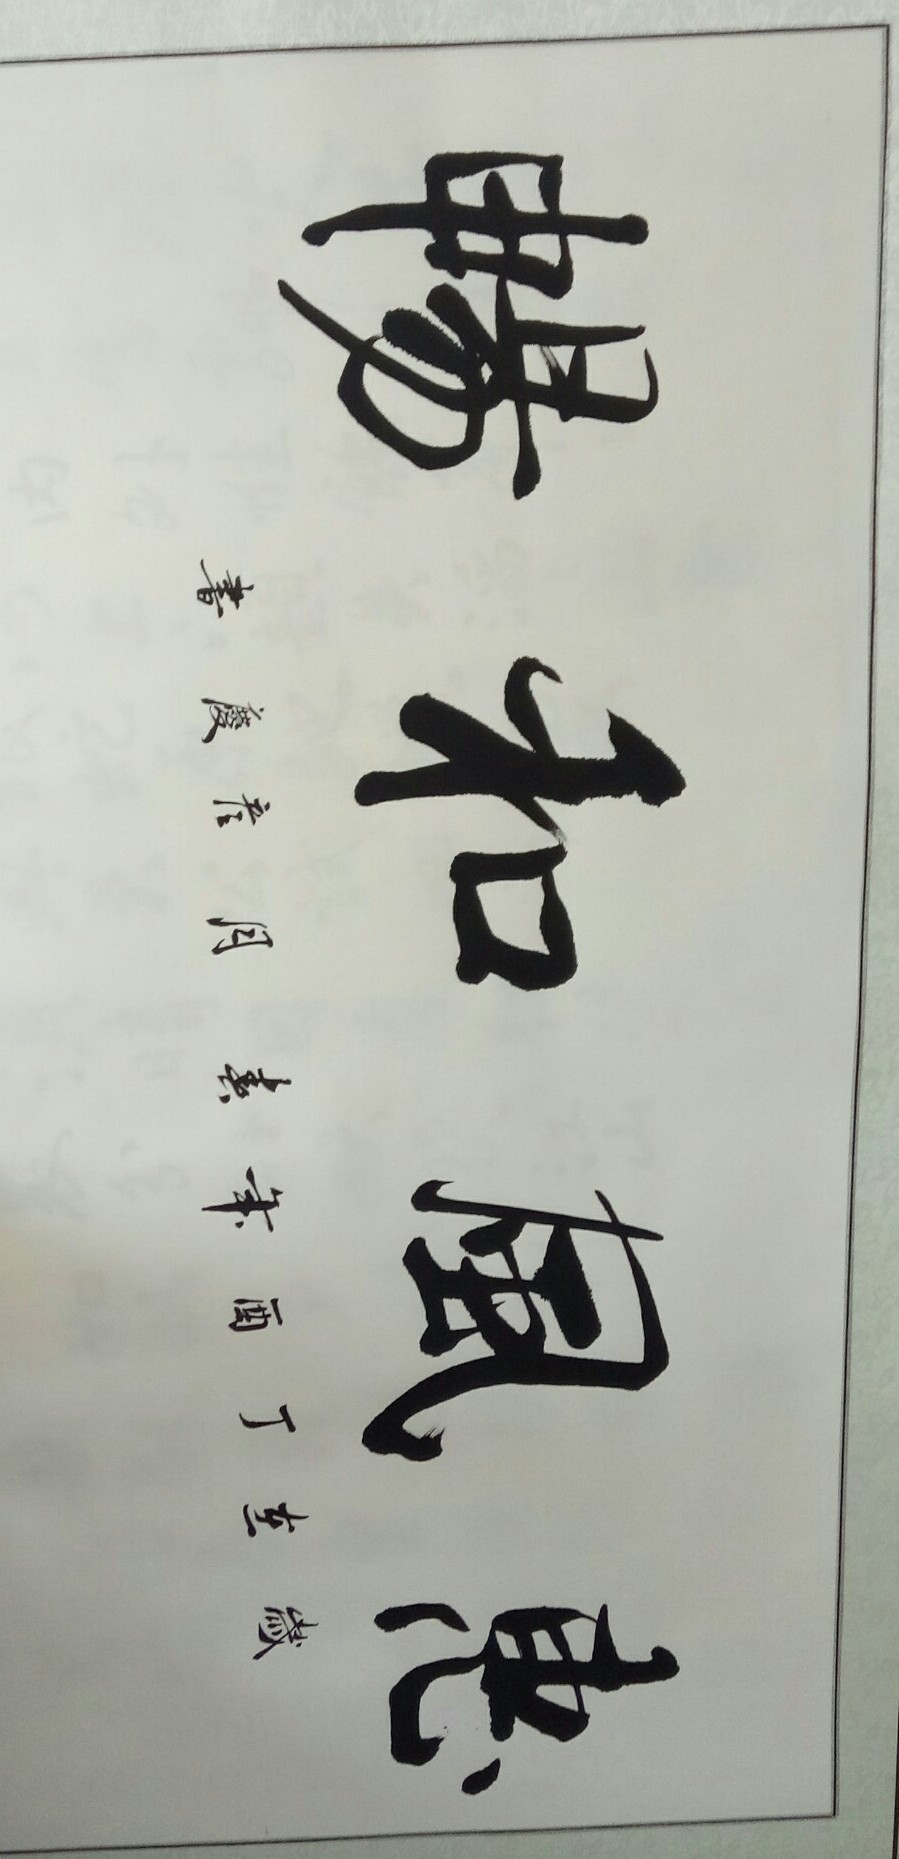 惠風和暢
歲在丁酉年月彦慶書